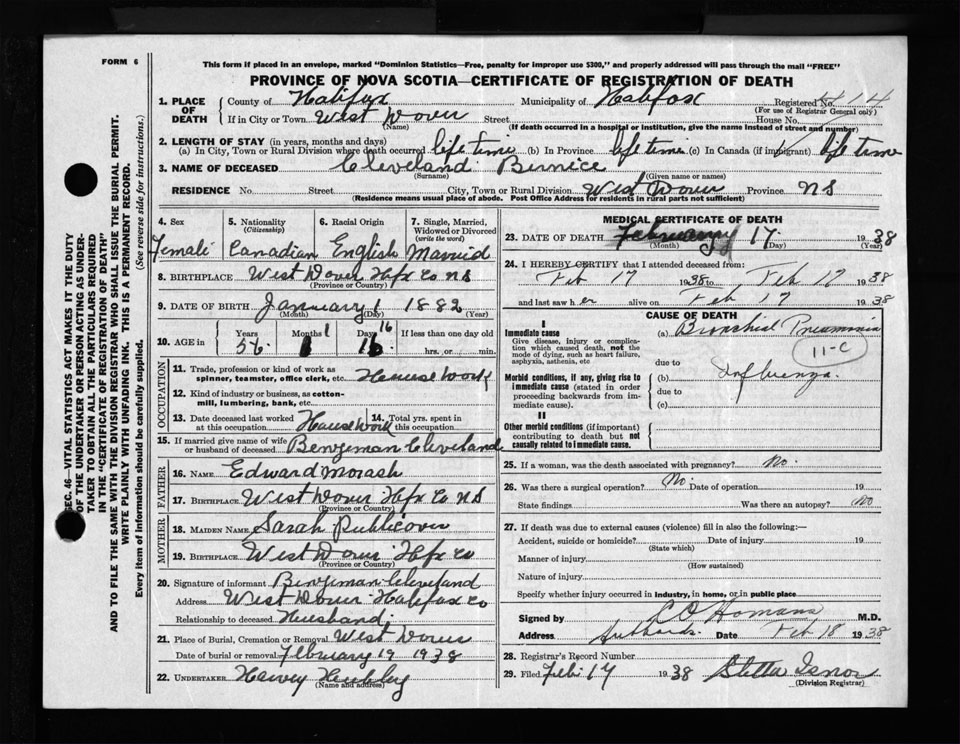 FORM 6
This form if placed in an envelope, marked "Dominion Statistics—Free, penalty for improper use $300," and properly addressed will pass through the mail "FREE"
PROVINCE OF NOVA SCOTIA—CERTIFICATE OF REGISTRATION OF DEATH
SEC. 46—VITAL STATISTICS ACT MAKES IT THE DUTY
OF THE UNDERTAKER OR PERSON ACTING AS UNDER-
TAKER TO OBTAIN ALL THE PARTICULARS REQUIRED
IN THE "CERTIFICATE OF REGISTRATION OF DEATH"
AND TO FILE THE SAME WITH THE DIVISION REGISTRAR WHO SHALL ISSUE THE BURIAL PERMIT.
WRITE PLAINLY WITH UNFADING INK. THIS IS A PERMANENT RECORD.
Every item of information should be carefully supplied. (See reverse side for instructions.)
1. PLACE OF DEATH County of Halifax Municipality of Halifax Registered No. 414
(For use of Registrar General only)
If in City or Town West Dover Street House No.
(Name)
(If death occurred in a hospital or institution, give the name instead of street and number)
2. LENGTH OF STAY (in years, months and days)
(a) In City, Town or Rural Division where death occurred life time (b) In Province life time (c) In Canada (if immigrant) life time
3. NAME OF DECEASED Cleveland Bernice
(Surname) (Given name or names)
RESIDENCE No. Street City, Town or Rural Division West Dover Province N S
(Residence means usual place of abode. Post Office Address for residents in rural parts not sufficient)
4. Sex 5. Nationality (Citizenship) 6. Racial Origin 7. Single, Married, Widowed or Divorced (write the word)
Female Canadian English Married
8. BIRTHPLACE West Dover Hfx Co N S
(Province or Country)
9. DATE OF BIRTH January 1 1882
(Month) (Day) (Year)
10. AGE in Years Months Days If less than one day old
56 1 16 hrs. or min.
OCCUPATION
11. Trade, profession or kind of work as spinner, teamster, office clerk, etc. House Work
12. Kind of industry or business, as cotton-mill, lumbering, bank, etc.
13. Date deceased last worked at this occupation House Work 14. Total yrs. spent in this occupation
15. If married give name of wife or husband of deceased Benjeman Cleveland
FATHER
16. NAME Edward Morash
17. BIRTHPLACE West Dover Hfx Co N S
(Province or Country)
MOTHER
18. MAIDEN NAME Sarah Publicover
19. BIRTHPLACE West Dover Hfx Co
(Province or Country)
20. Signature of informant Benjeman Cleveland
Address West Dover Halifax Co
Relationship to deceased Husband
21. Place of Burial, Cremation or Removal West Dover
Date of burial or removal February 19 1938
22. UNDERTAKER Harvey
(Name and address)
MEDICAL CERTIFICATE OF DEATH
23. DATE OF DEATH February 17 1938
(Month) (Day) (Year)
24. I HEREBY CERTIFY that I attended deceased from:
Feb 17 1938 to Feb 17 1938
and last saw her alive on Feb 17 1938
CAUSE OF DEATH
I
Immediate cause
Give disease, injury or complication which caused death, not the mode of dying, such as heart failure, asphyxia, asthenia, etc
(a) Bronchial Pneumonia
11-C
due to
Morbid conditions, if any, giving rise to immediate cause (stated in order proceeding backwards from immediate cause).
(b) Influenza.
due to
(c)
II
Other morbid conditions (if important) contributing to death but not causally related to immediate cause.
25. If a woman, was the death associated with pregnancy? No
26. Was there a surgical operation? No Date of operation 19
State findings Was there an autopsy? No
27. If death was due to external causes (violence) fill in also the following:—
Accident, suicide or homicide? Date of injury 19
(State which)
Manner of injury
(How sustained)
Nature of injury
Specify whether injury occurred in industry, in home, or in public place
Signed by Homans M.D.
Address Date Feb 18 1938
28. Registrar's Record Number
29. Filed Feb 17 1938 Stella Isnor
(Division Registrar)